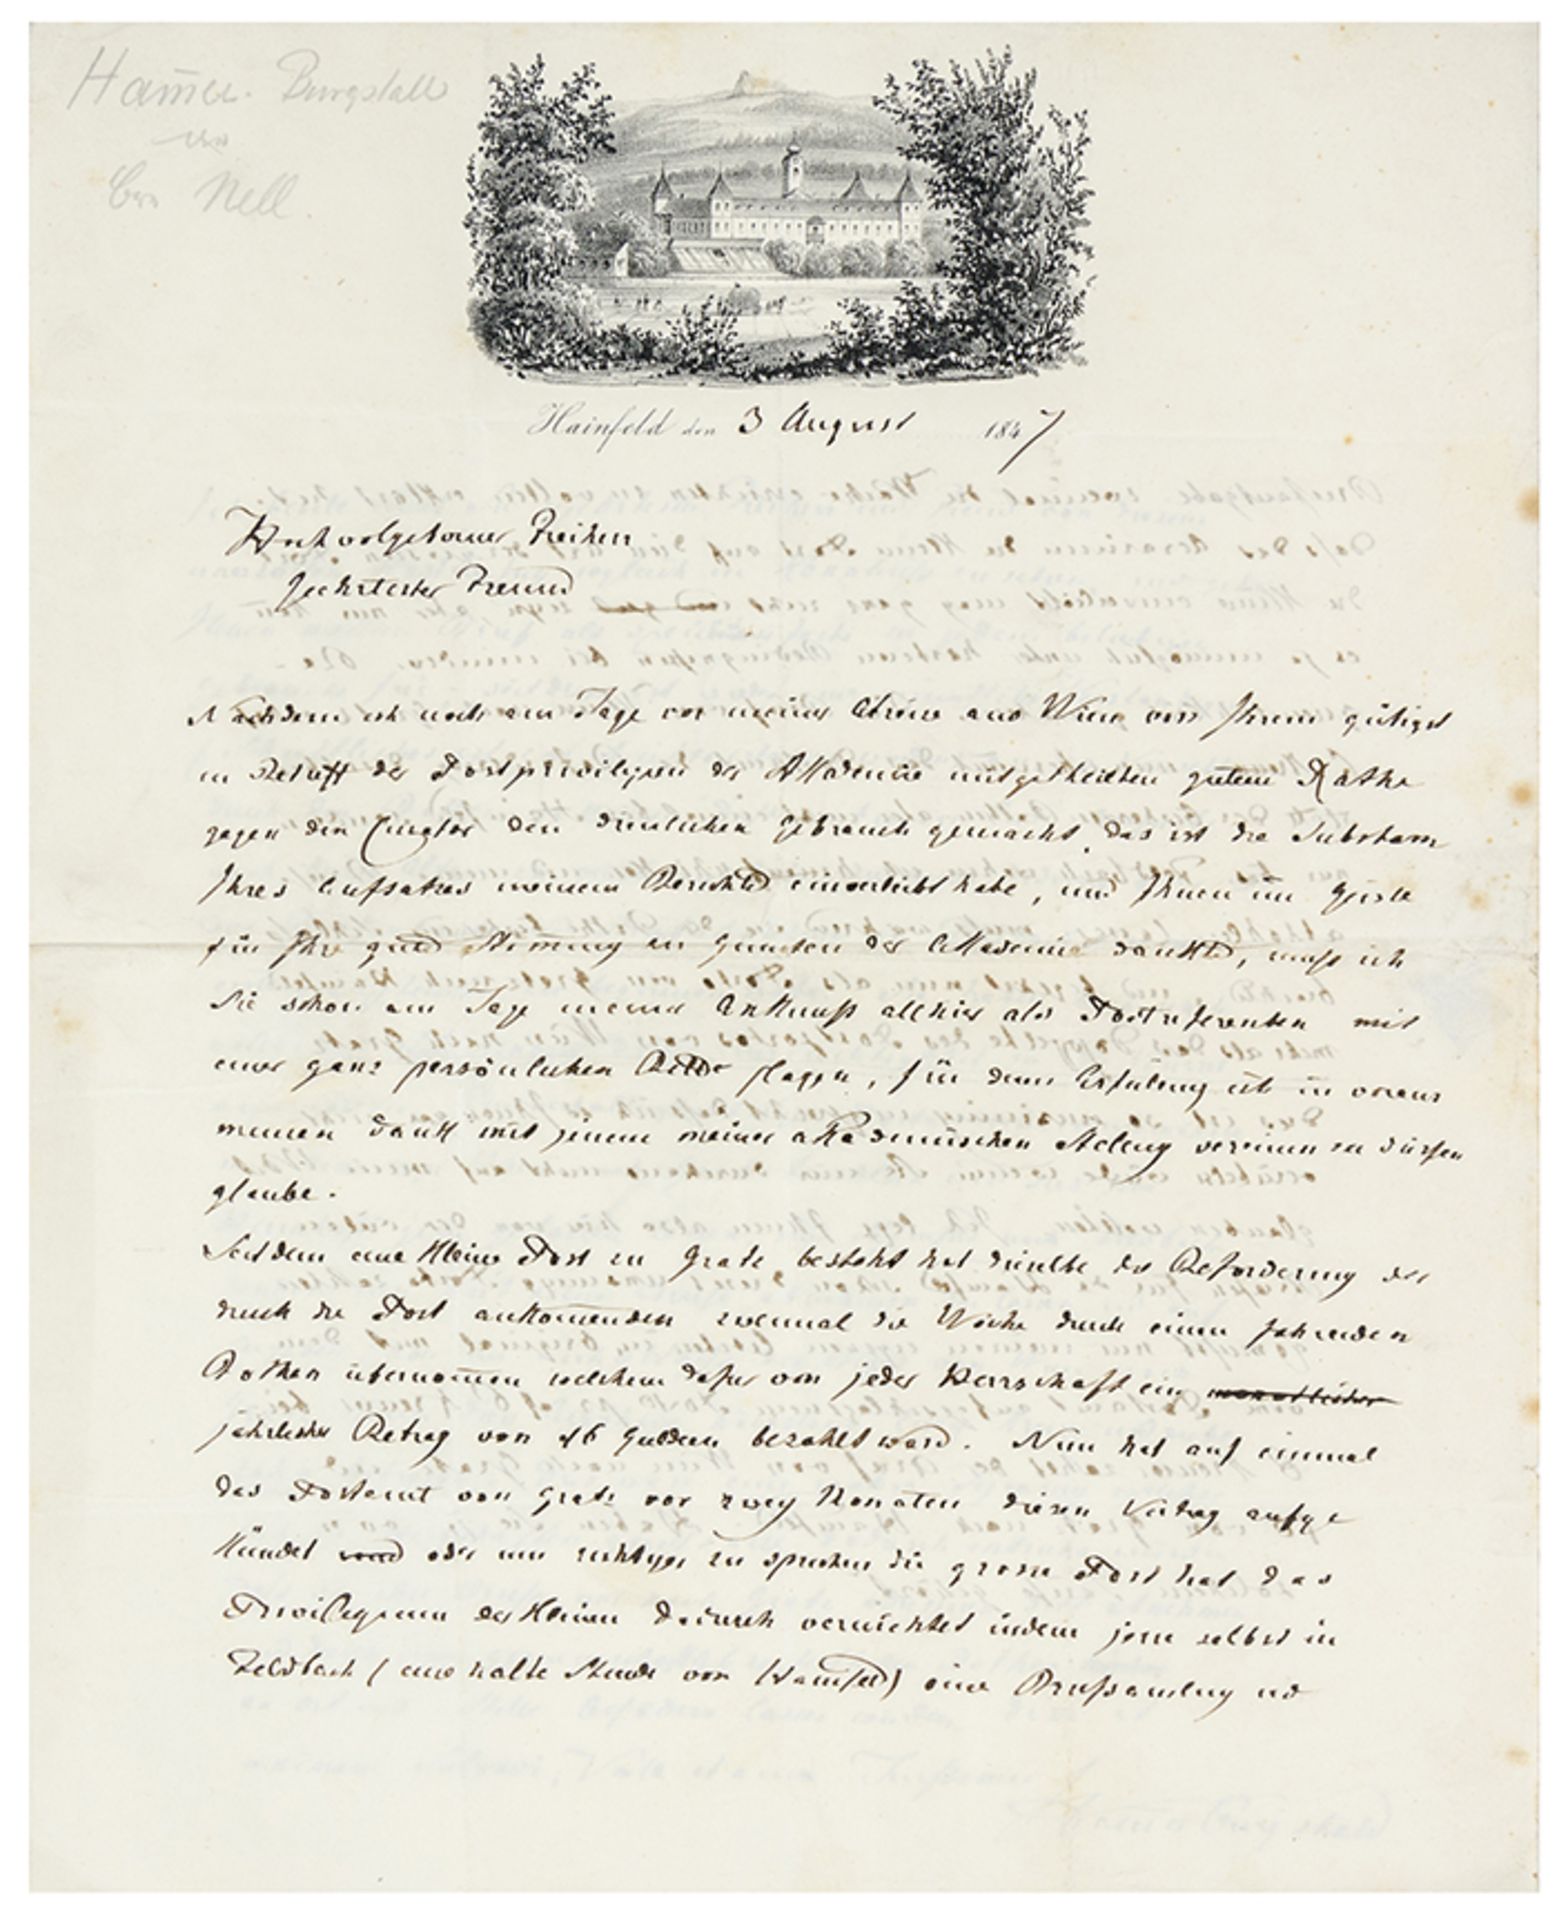 Ham̄er. Burgstall
an
Bar. Nell.
Hainfeld den 3 August 1847
Hochwolgeborner Freiherr
geehrtester Freund
Nachdem ich noch am Tage vor meiner Abreise aus Wien von Ihrem gütigst
in Betreff der Postprivilegien der Akademie mitgetheilten gutem Rathe
gegen den Curator den dienlichen Gebrauch gemacht, das ist die Substanz
Ihres Aufsatzes meinem Berichte einverleibt habe, und Ihnen im Geiste
für Ihre gute Stim̄ung zu Gunsten der Akademie dankte, muß ich
Sie schon am Tage meiner Ankunft allhier als Postreferenten mit
einer ganz persönlichen Bitte plagen, für deren Erfüllung ich in voraus
meinen Dank mit jenem meiner akademischen Stellung vereinen zu dürfen
glaube.
Seitdem eine kleine Post zu Gratz besteht hat dieselbe die Beförderung der
durch die Post ankom̄enden zweimal die Woche durch einen fahrenden
Bothen übernom̄en welchem dafür von jeder Herrschaft ein monatlicher
jährlicher Betrag von 16 Gulden bezahlt ward. Nun hat auf einmal
das Postamt von Gratz vor zwey Monaten diesen Vertrag aufge
kündet und oder um richtiger zu sprechen die grosse Post hat das
Privilegium der kleinen dadurch vernichtet indem jene selbst in
Feldbach (eine halbe Stunde von Hainfeld) eine Briefsamlung und